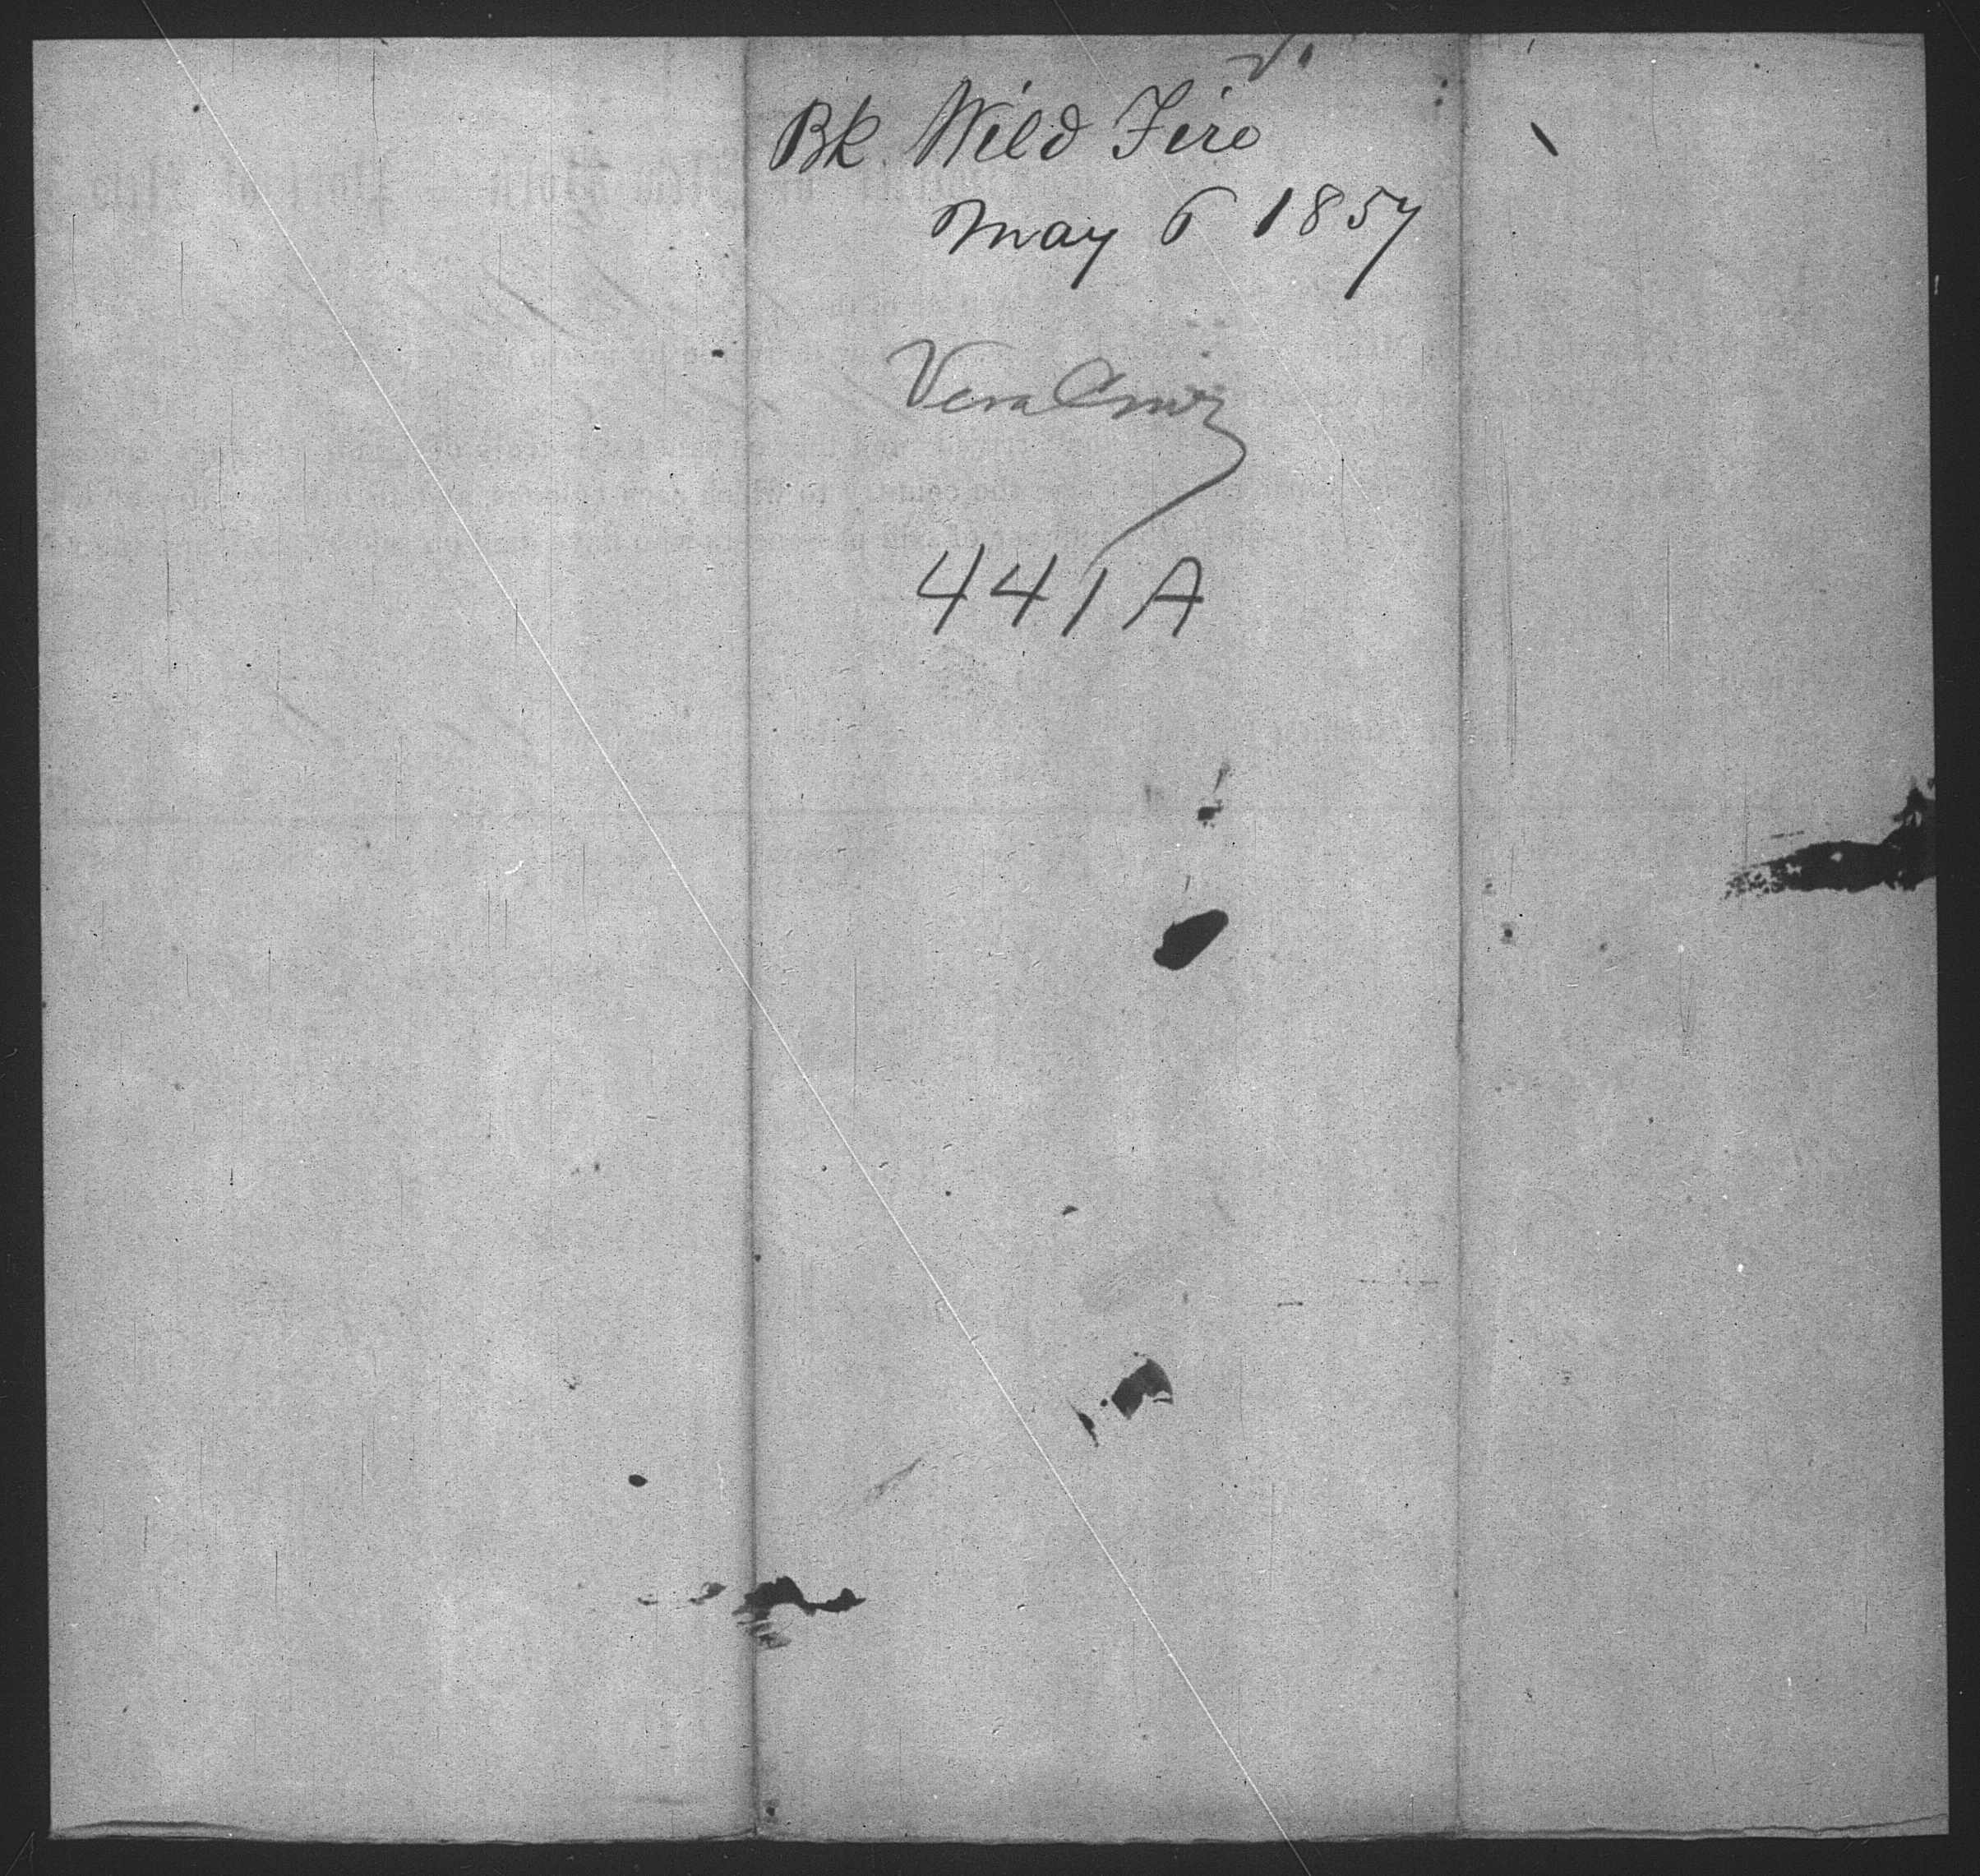 Bk Wild Fire
May 6 1857
Vera Cruz
441 A